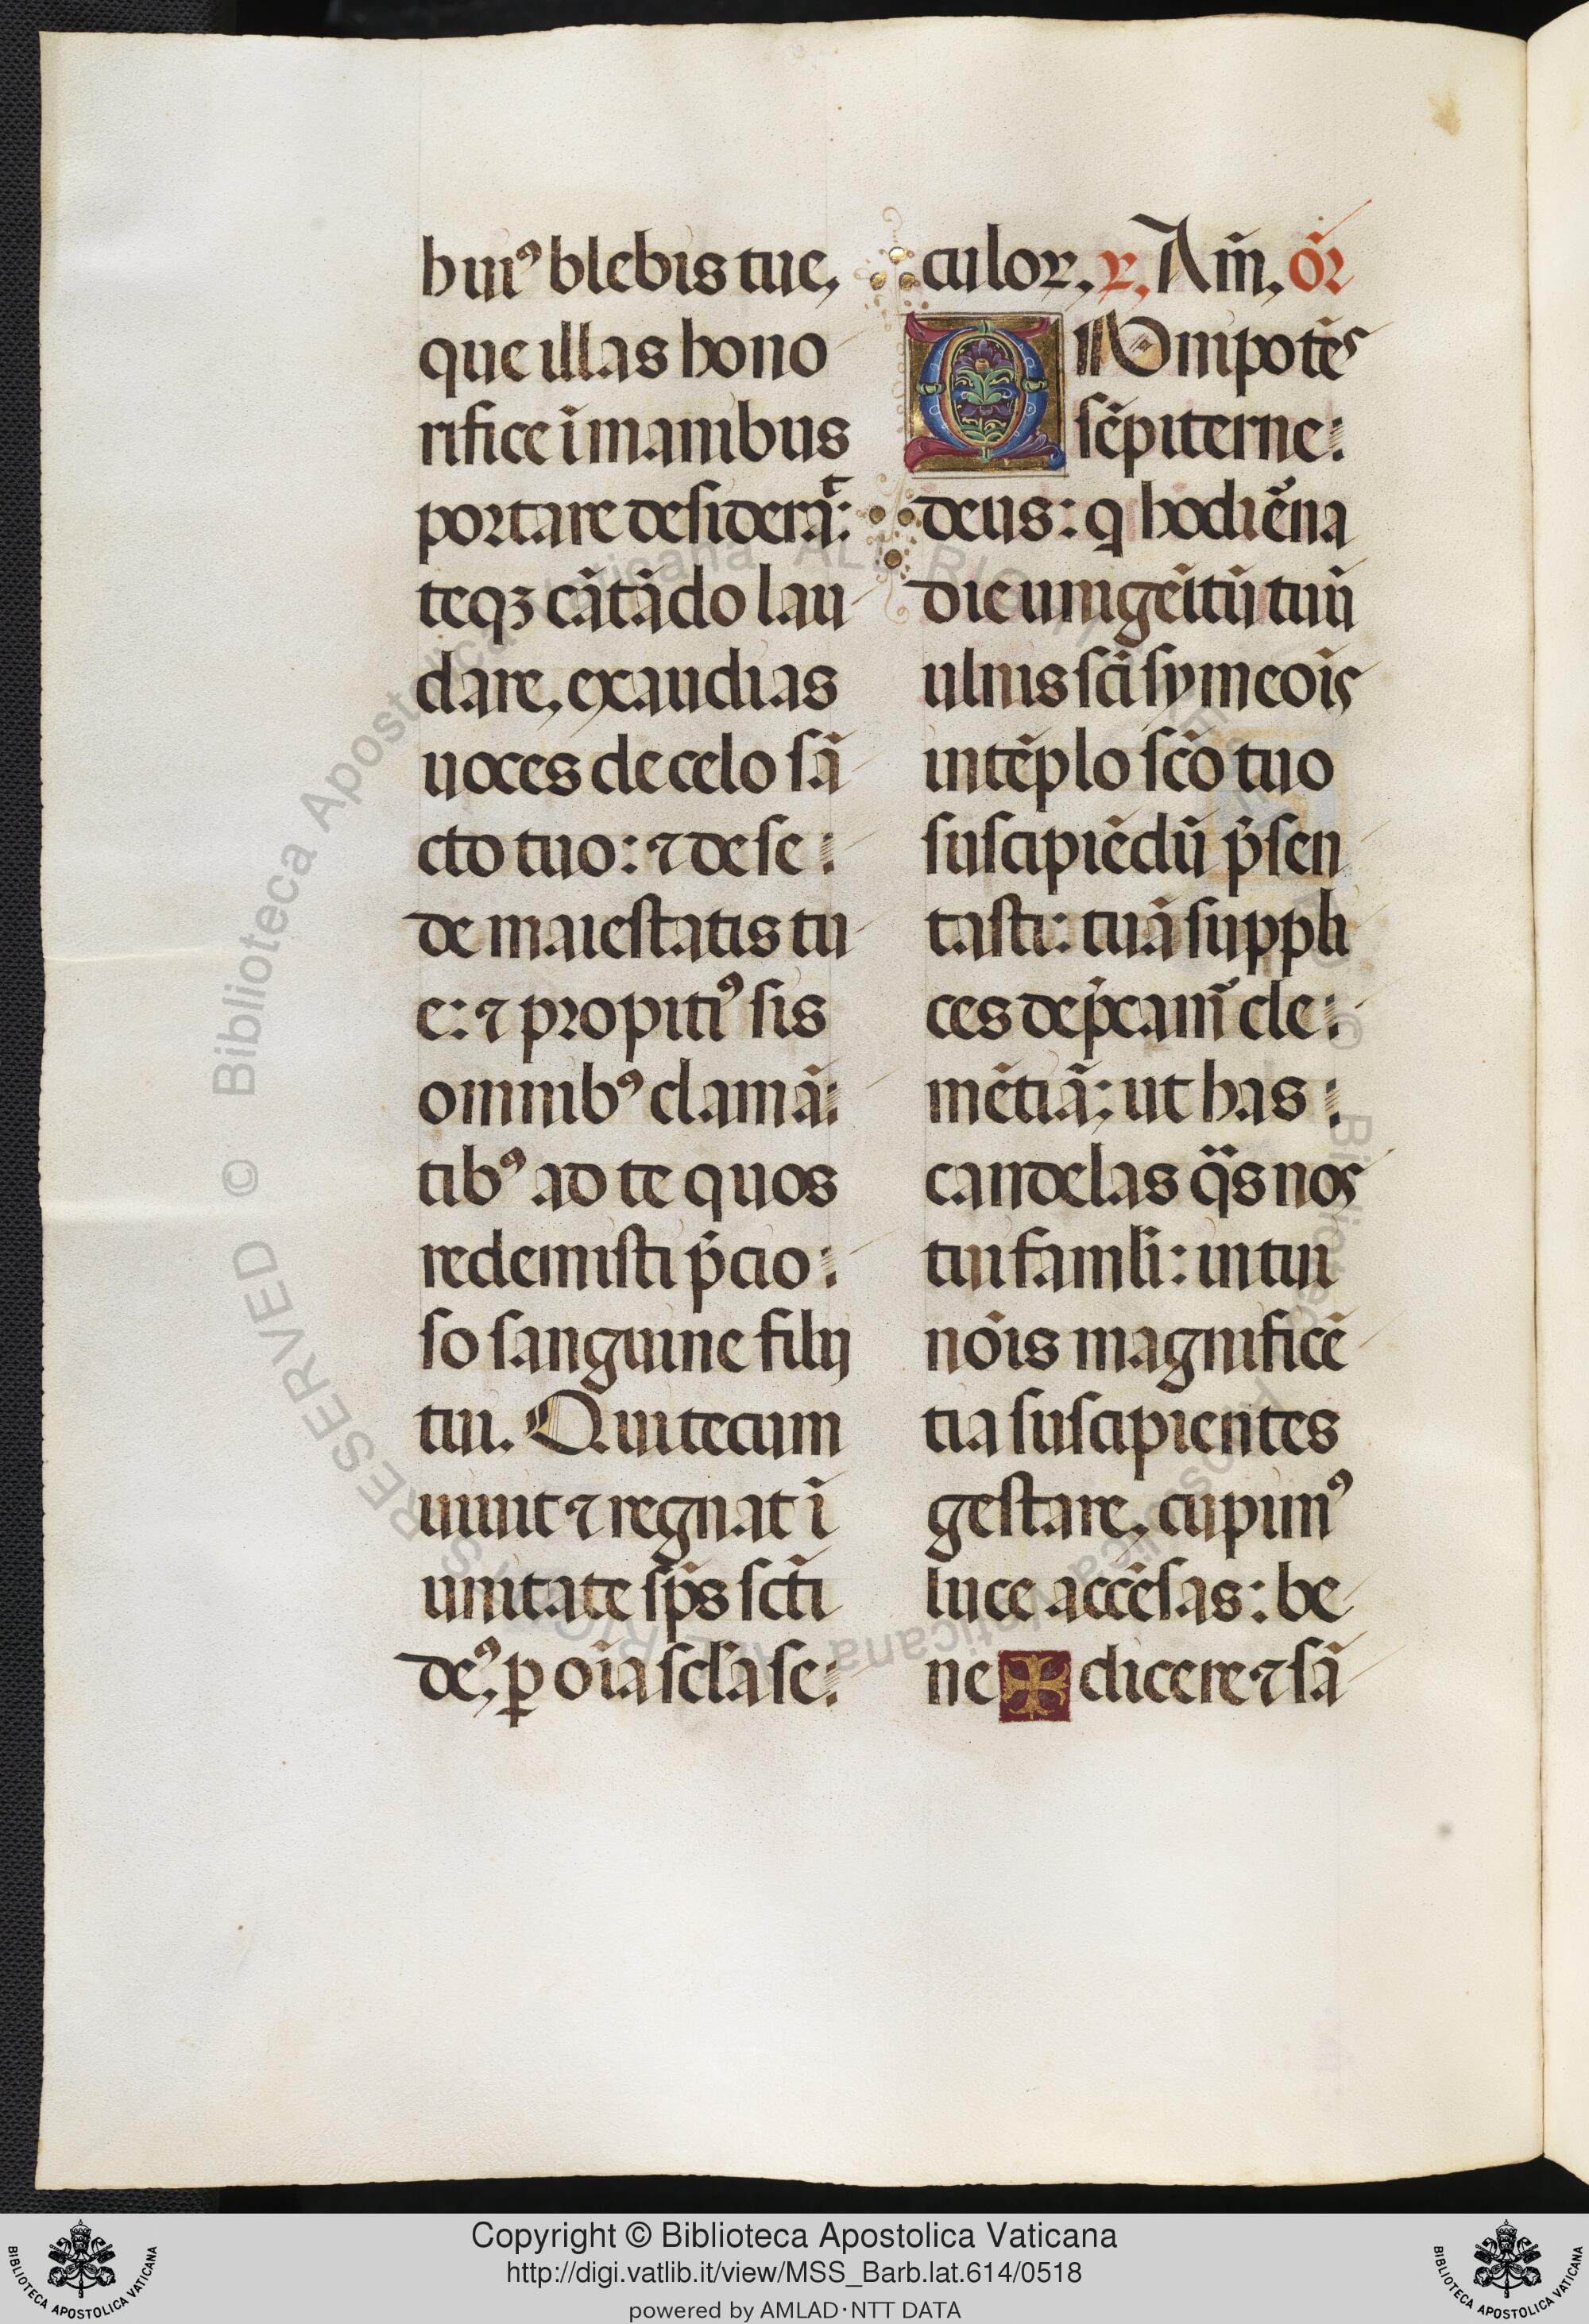 huiꝰ blebis tue,
que illas hono
rifice ī manibus
portare desiderāt:
teqꝫ cātādo lau
dare, exaudias
uoces de celo sā
cto tuo: ⁊ de se
de maiestatis tu
e: ⁊ propitiꝰ sis
omnibꝰ clamā
tibꝰ ad te quos
redemisti p̄cio
so sanguine filij
tui. Qui tecum
uiuit ⁊ regnat ī
unitate sp̄s sctī
deꝰ, ꝑ oīa sc̄la se
culoꝝ, ꝶ, Am̄, or̄
OMnipotēs
sēpiterne:
deus: q hodiērna
die unigeītū tuū
ulnis scī symeoīs
in tēplo scō tuo
suscipiēdū p̄sen
tasti: tuā suppli
ces dep̄camꝰ cle
mētiā: ut has
candelas q̄s nos
tui famli: in tui
noīs magnificē
tia suscipientes
gestare, cupimꝰ
luce accēsas: be
ne ✠ dicere ⁊ sā
Copyright © Biblioteca Apostolica Vaticana
http://digi.vatlib.it/view/MSS_Barb.lat.614/0518
powered by AMLAD·NTT DATA
BIBLIOTECA APOSTOLICA VATICANA
BIBLIOTECA APOSTOLICA VATICANA